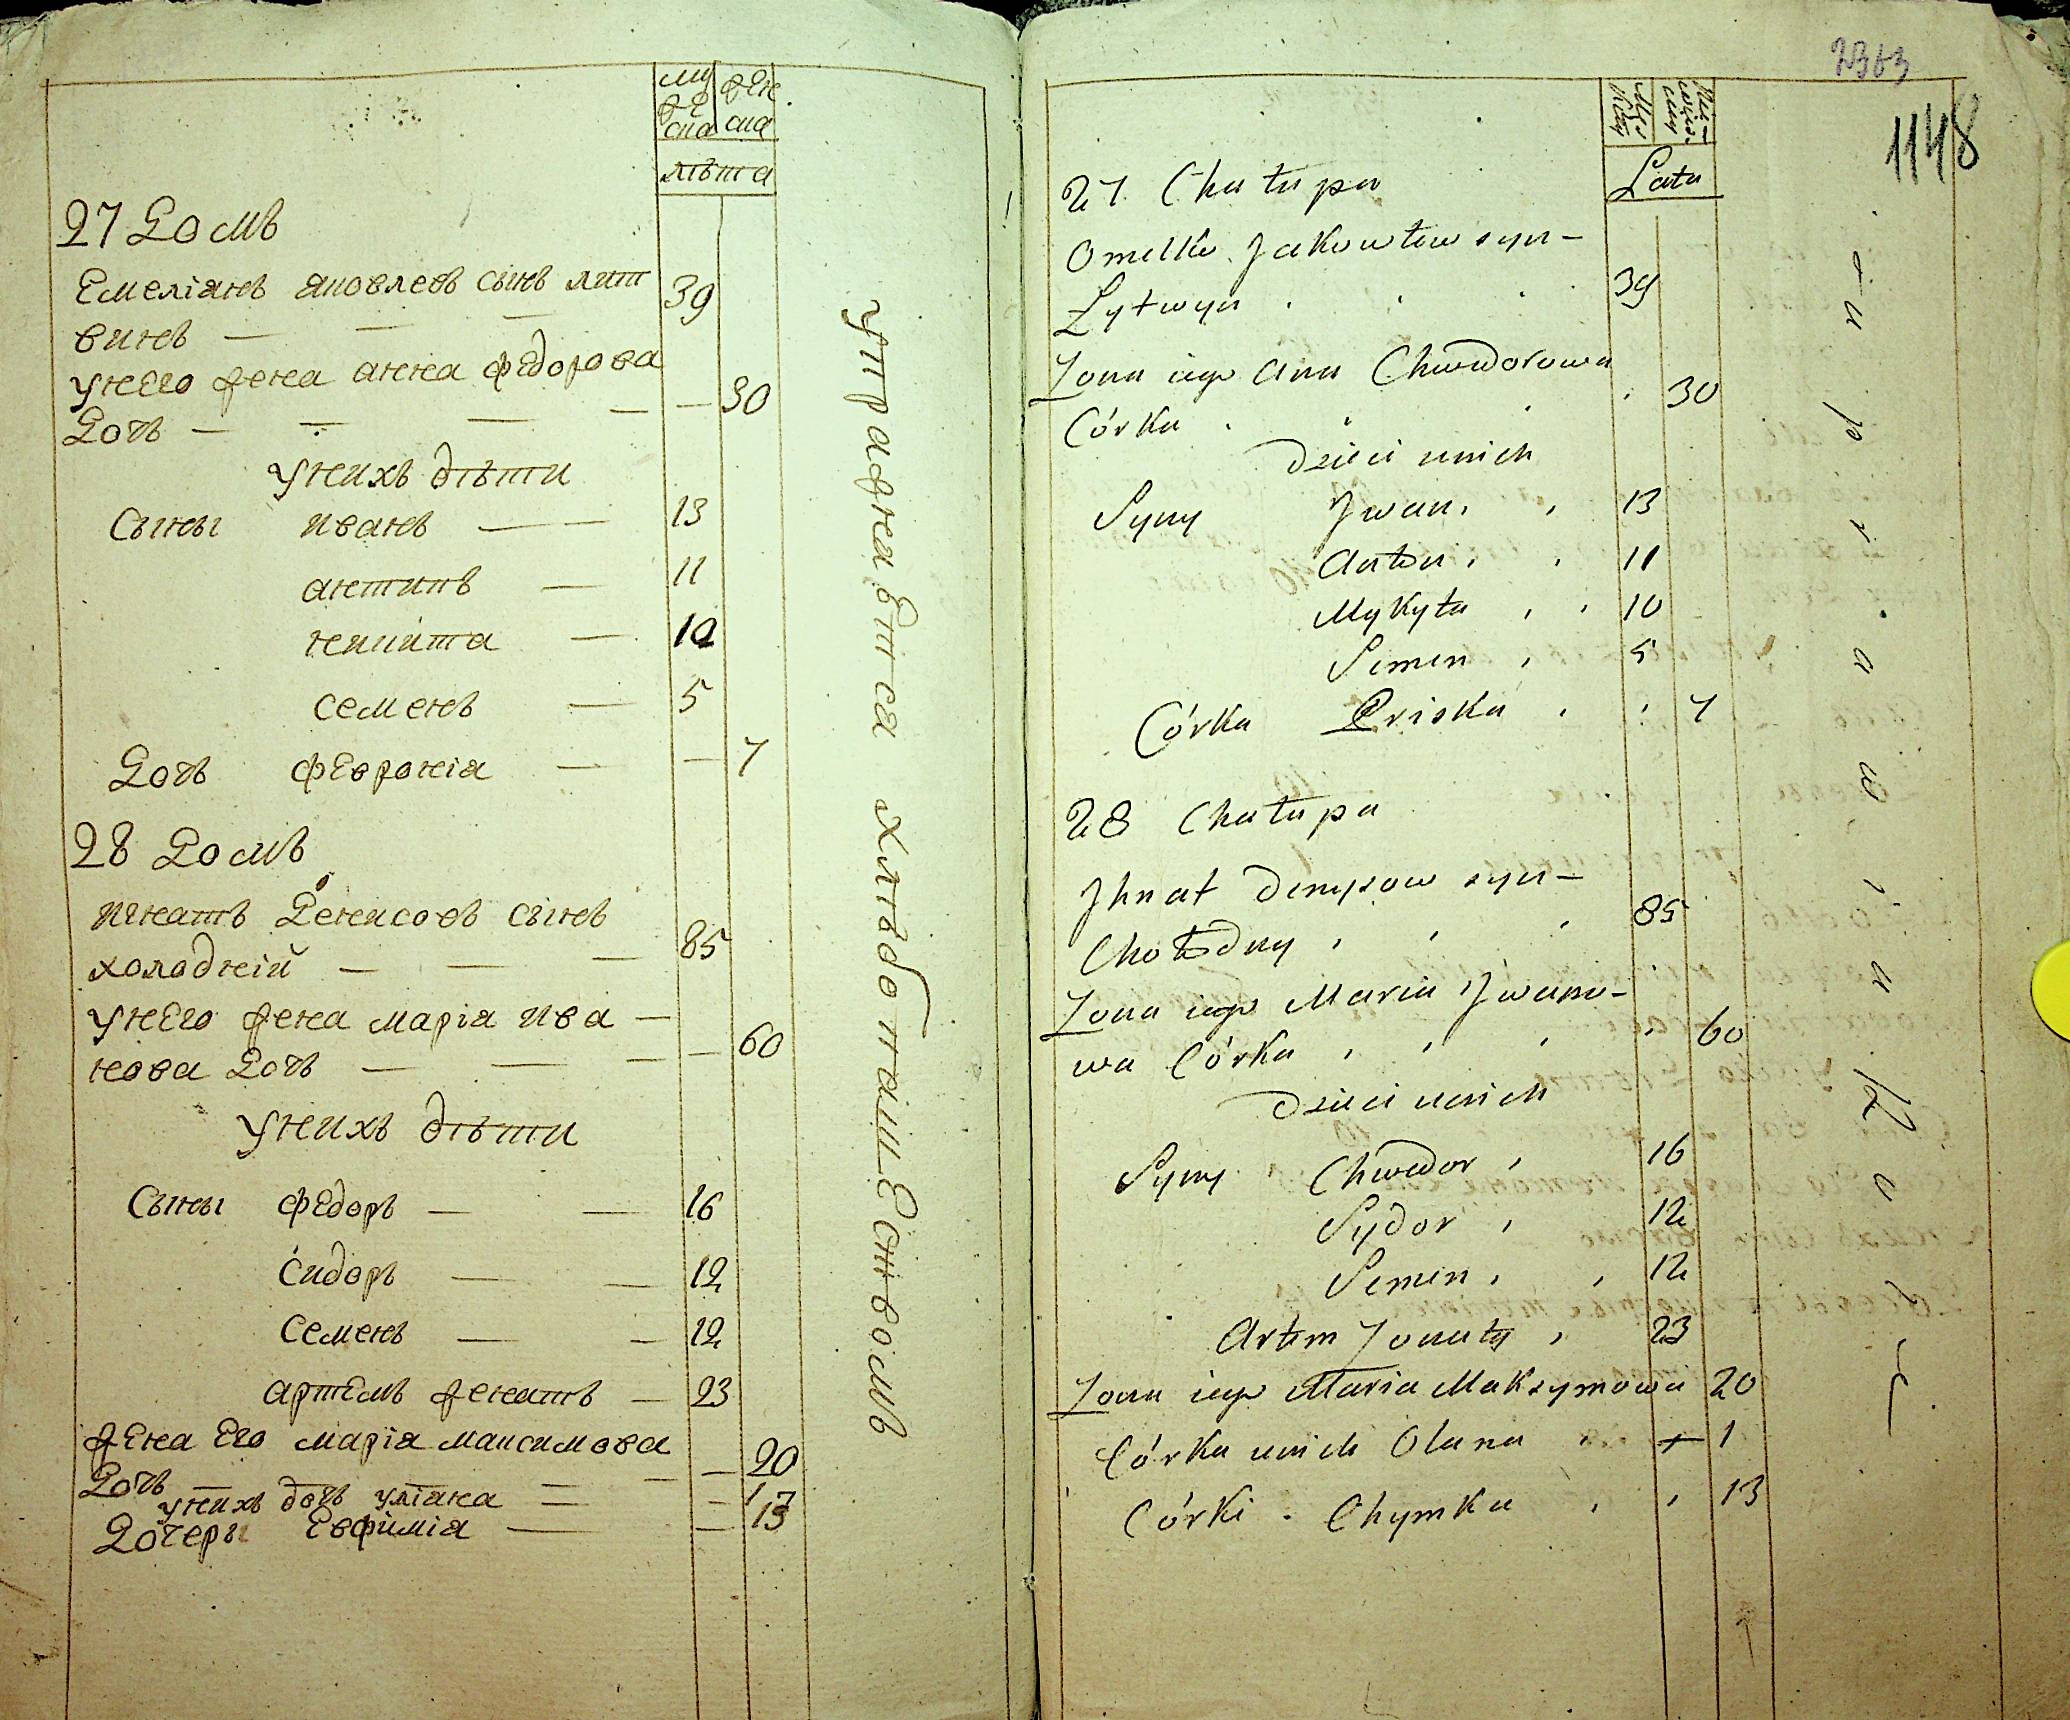 му
же
ска
жен
ска
лѣта
27 Домъ
Емелiанъ яковлевъ сынъ лит
винъ — — — 39
унего жена анна федорова
Дочь — — — — — 30
унихъ дѣти
Сыны иванъ — — 13
антипъ — 11
никита — 10
семенъ — 5
Дочь февронiа — — 7
28 Домъ
игнатъ Денисовъ сынъ
холаднiй — — — 85
унего жена марiа ива —
нова Дочь — — — — 60
унихъ дѣти
Сыны федоръ — — 16
Сидоръ — — 12
семенъ — — 12
артемъ женатъ — 23
жена его марiа максимова
Дочь — — — — — 20
унихъ дочь улiана
Дочеры Евфимiа — — 13
упражняется хлѣбопашествомъ
2363
1148
Męs
kiey
Lata
27 Chałupa
Omelko Jakowłew syn —
Lytwyn 39
Zona iego Ana Chwedorowa
Córka 30
Dzieci unich
Syny Jwan 13
Anton 11
Mykyta 10
Semen 5
Córka Priska 7
28 Chałupa
Jhnat Denysow syn —
Chołodny 85
Zona iego Maria Jwano —
wa Córka 60
Dzieci unich
Syny Chwedor 16
Sydor 12
Semen 12
Artem Zonaty 23
Zona iego Maria Maksymowa 20
Córka unich Olana 1
Córki Chymka 13